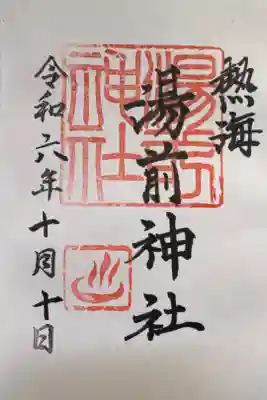 熱海
湯前神社
湯前神社
令和六年十月十日